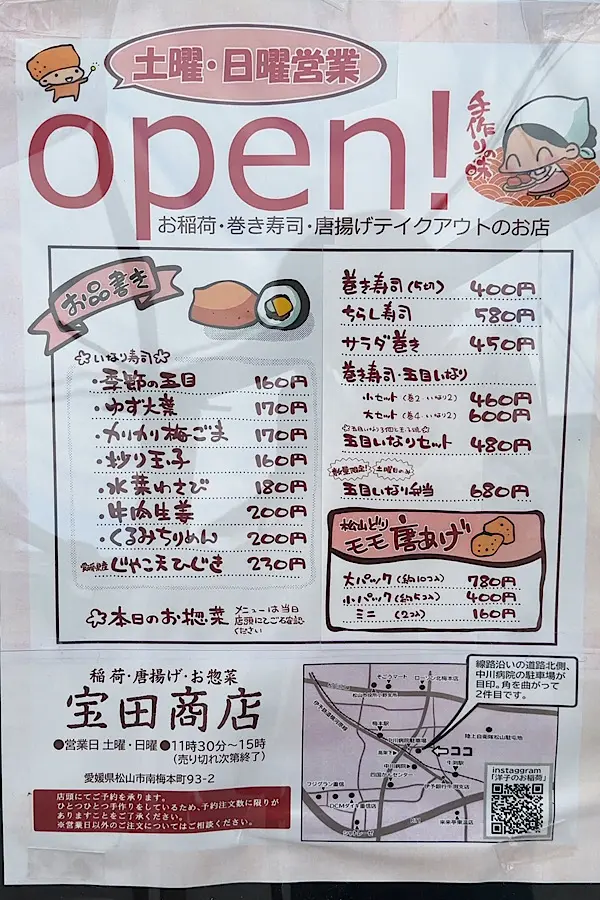 土曜・日曜営業
open!
手作りの味
お稲荷・巻き寿司・唐揚げテイクアウトのお店
お品書き
いなり寿司
・季節の五目 160円
・ゆず大葉 170円
・カリカリ梅ごま 170円
・炒り玉子 160円
・水菜わさび 180円
・牛肉生姜 200円
・くるみちりめん 200円
じゃこえひじき 230円
本日のお惣菜
メニューは当日
店頭にてご確認
ください
巻き寿司(5切) 400円
ちらし寿司 580円
サラダ巻き 450円
巻き寿司・五目いなり
小セット(巻2・いなり2) 460円
大セット(巻4・いなり2) 600円
五目いなりセット 480円
数量限定! 土曜日のみ
五目いなり弁当 680円
松山どり
モモ唐あげ
大パック(約10コ入) 780円
小パック(約5コ入) 400円
ミニ (2コ入) 160円
稲荷・唐揚げ・お惣菜
宝田商店
●営業日 土曜・日曜 ●11時30分〜15時
(売り切れ次第終了)
愛媛県松山市南梅本町93-2
店頭にてご予約を承ります。
ひとつひとつ手作りをしているため、予約注文数に限りが
ありますことをご了承ください。
※営業日以外のご注文についてはご相談ください。
線路沿いの道路北側、
中川病院の駐車場が
目印。角を曲がって
2件目です。
そごうマート
ローソン北梅本店
梅本駅
中川病院駐車場
ココ
陸上自衛隊松山駐屯地
中川病院
四国がんセンター
牛渕駅
伊予銀行牛渕支店
フジグラン重信
DCMダイキ重信店
シャトレーゼ
instaggram
「洋子のお稲荷」